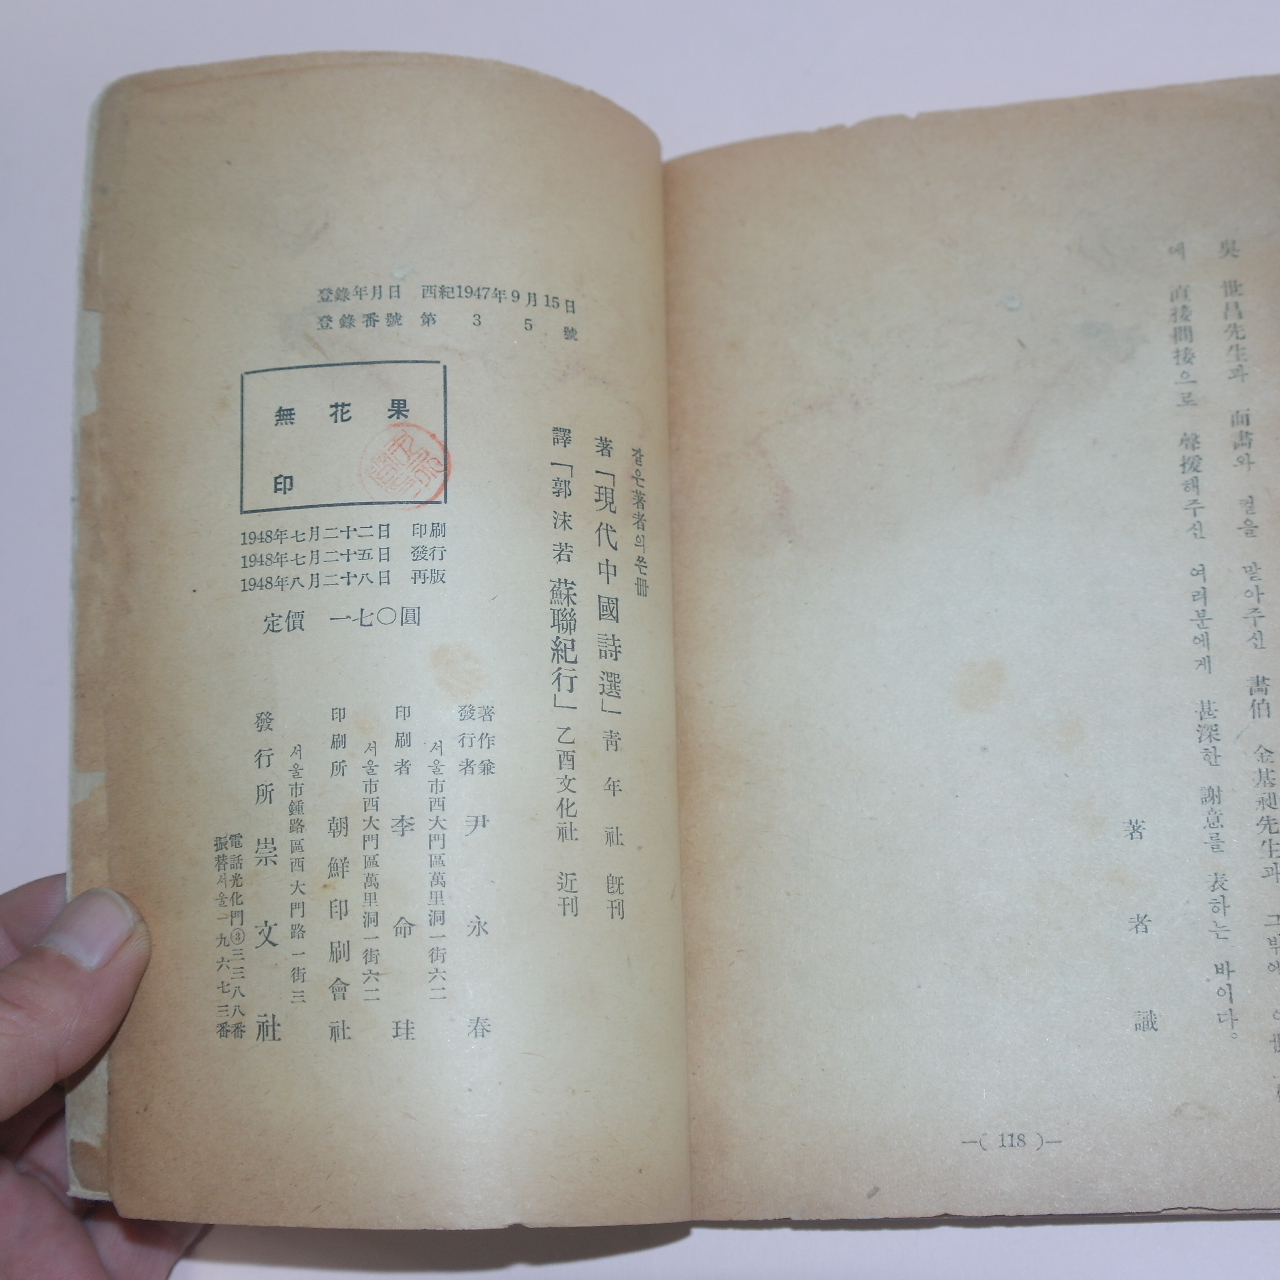 吳世昌先生과 面畵와 컽을 맡아주신 畵伯 金基昶先生과 그밖에
에 直接間接으로 聲援해주신 여러분에게 甚深한 謝意를 表하는 바이다。
著者識
—( 118 )—
登錄年月日 西紀1947年9月15日
登錄番號 第35號
같은著者의쓴冊
著「現代中國詩選」靑年社 旣刊
譯「郭沫若 蘇聯紀行」乙酉文化社 近刊
無花果
印
1948年七月二十二日 印刷
1948年七月二十五日 發行
1948年八月二十八日 再版
定價 一七〇圓
著作兼發行者 尹永春
서울市西大門區萬里洞一街六二
印刷者 李命珪
서울市西大門區萬里洞一街六二
印刷所 朝鮮印刷會社
서울市鍾路區西大門路一街三
發行所 崇文社
電話光化門③三三八八番
振替서울一九六七三番